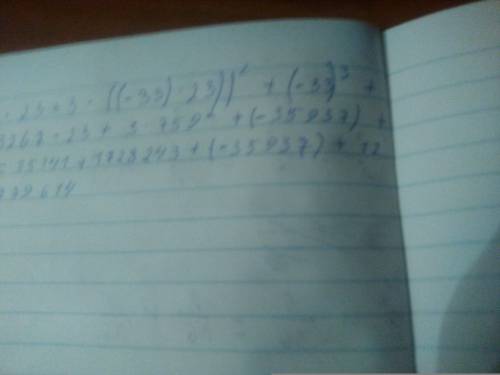 · 23 + 3 · ((-33) · 23))² + (-33)³ +
3267 · 23 + 3 · 759² + (-35937) +
75141 + 1728243 + (-35937) + 12
779614